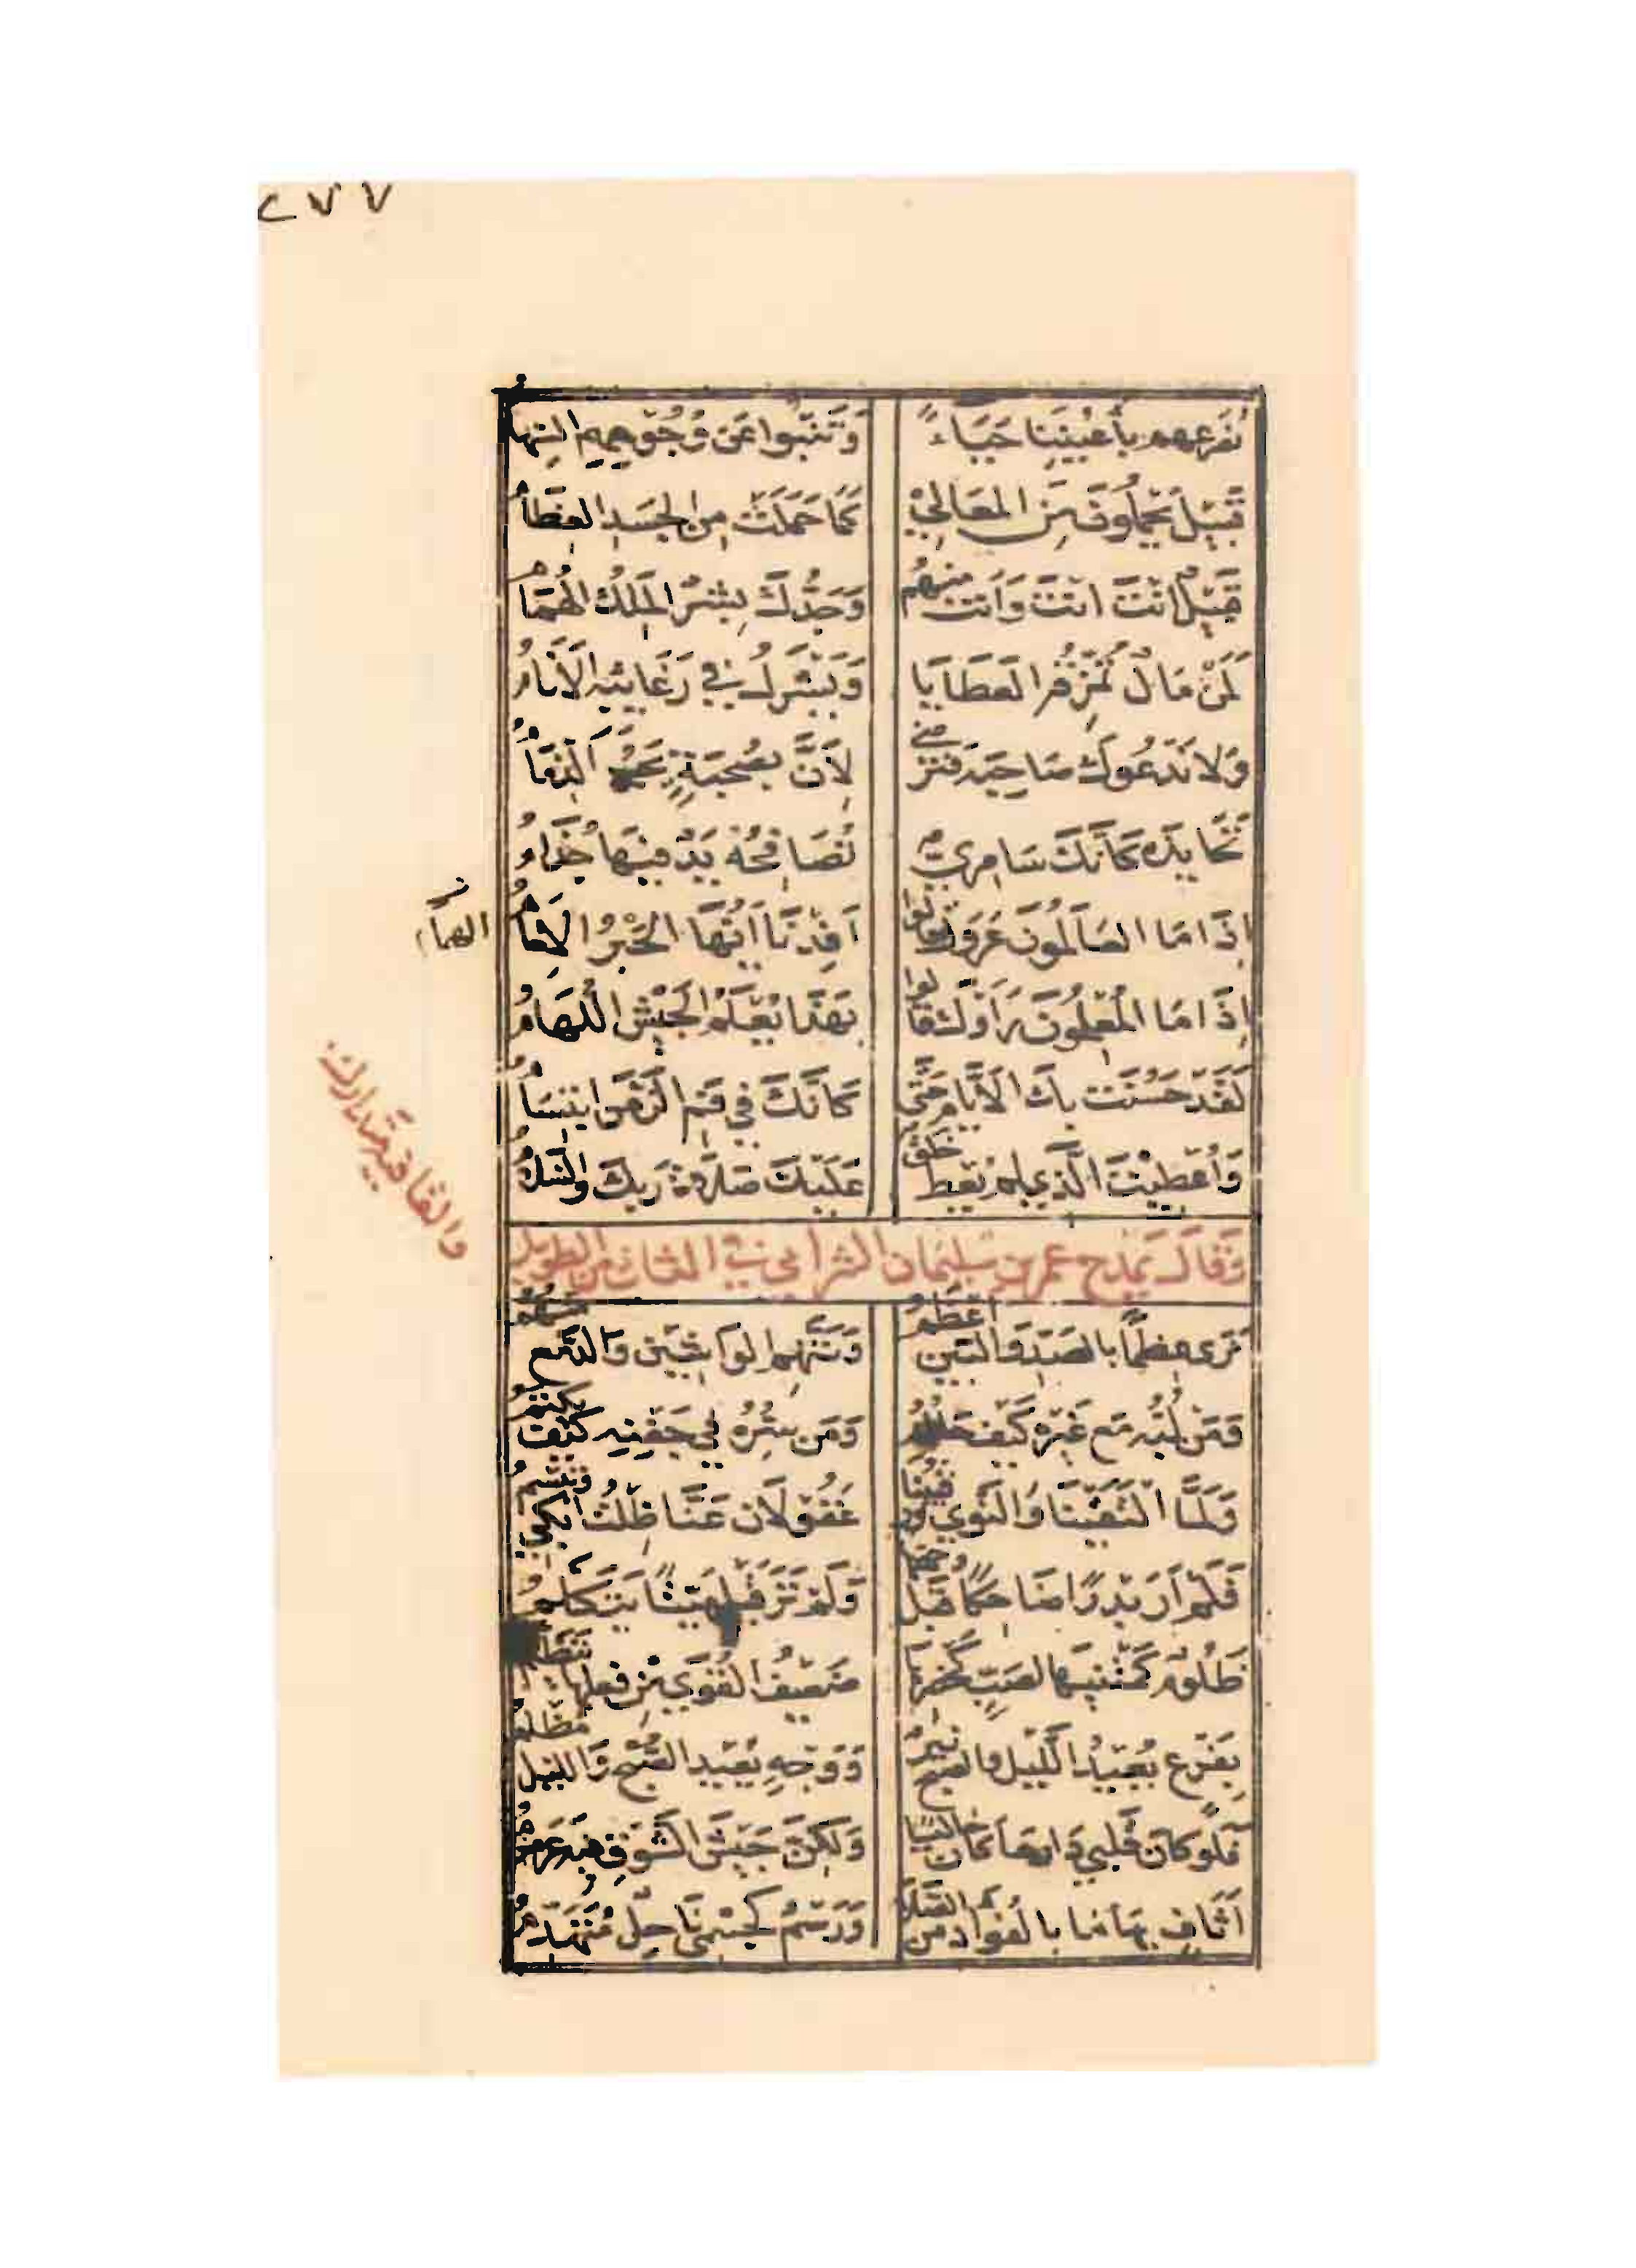 ٢٧٧
نُصَرِّعُهُم بِأَعْيُنِنَا حَيَاءً وَتَنْبُوا عَنْ وُجُوهِهِمُ السِّهَامُ
قَبِيلٌ يَحْمِلُونَ مِنَ الْمَعَالِي كَمَا حَمَلَتْ مِنَ الْجَسَدِ الْعِظَامُ
قَبِيلٌ أَنْتَ أَنْتَ وَأَنْتَ مِنْهُمُ وَجَدُّكَ بِشْرٌ الْمَلِكُ الْهُمَامُ
لِمَنْ مَالٌ تُمَزِّقُهُ الْعَطَايَا وَيَشْرَكُ فِي رَغَائِبِهِ الْأَنَامُ
وَلَا نَدْعُوكَ صَاحِبَهُ فَتَرْضَى لِأَنَّ بِصُحْبَةٍ يَجِبُ الذِّمَامُ
تُحَايِدُهُ كَأَنَّكَ سَامِرِيٌّ تُصَافِحُهُ يَدٌ فِيهَا جُذَامُ
إِذَا مَا الْعَالِمُونَ عَرَوْكَ قَالُوا أَفِدْنَا أَيُّهَا الْحَبْرُ الْإِمَامُ
الهمام
إِذَا مَا الْمُعْلِمُونَ رَأَوْكَ قَالُوا بِهَذَا يُعْلَمُ الْجَيْشُ اللُّهَامُ
لَقَدْ حَسُنَتْ بِكَ الْأَيَّامُ حَتَّى كَأَنَّكَ فِي فَمِ الزَّمَنِ ابْتِسَامُ
وَأُعْطِيتَ الَّذِي لَمْ يُعْطَ خَلْقٌ عَلَيْكَ صَلَاةُ رَبِّكَ وَالسَّلَامُ
وَقَالَ يَمْدَحُ عمر بن سليمان الشرابي في الثاني من الطويل
والقافية متدارك
نَرَى عِظَمًا بِالصَّدِّ وَالْبَيْنُ أَعْظَمُ وَنَتَّهِمُ الْوَاشِينَ وَالدَّمْعُ مِنْهُمُ
وَمَنْ لُبُّهُ مَعْ غَيْرِهِ كَيْفَ حَالُهُ وَمَنْ سِرُّهُ فِي جَفْنِهِ كَيْفَ يَكْتُمُ
وَلَمَّا الْتَقَيْنَا وَالنَّوَى وَرَقِيبُنَا غَفُولَانِ عَنَّا ظَلْتُ أَبْكِي وَتَبْسِمُ
فَلَمْ أَرَ بَدْرًا ضَاحِكًا قَبْلَ وَجْهِهَا وَلَمْ تَرَ قَبْلِي مَيِّتًا يَتَكَلَّمُ
ظَلُومٌ كَمَتْنَيْهَا لِصَبٍّ كَخَصْرِهَا ضَعِيفُ الْقُوَى مِنْ فِعْلِهَا يَتَظَلَّمُ
بِفَرْعٍ يُعِيدُ اللَّيْلَ وَالصُّبْحُ نَيِّرٌ وَوَجْهٍ يُعِيدُ الصُّبْحَ وَاللَّيْلُ مُظْلِمُ
فَلَوْ كَانَ قَلْبِي دَارَهَا كَانَ خَالِيًا وَلَكِنَّ جَيْشَ الشَّوْقِ فِيهِ عَرَمْرَمُ
أَثَافٍ بِهَا مَا بِالْفُؤَادِ مِنَ الصَّلَى وَرَسْمٌ كَجِسْمِي نَاحِلٌ مُتَهَدِّمُ